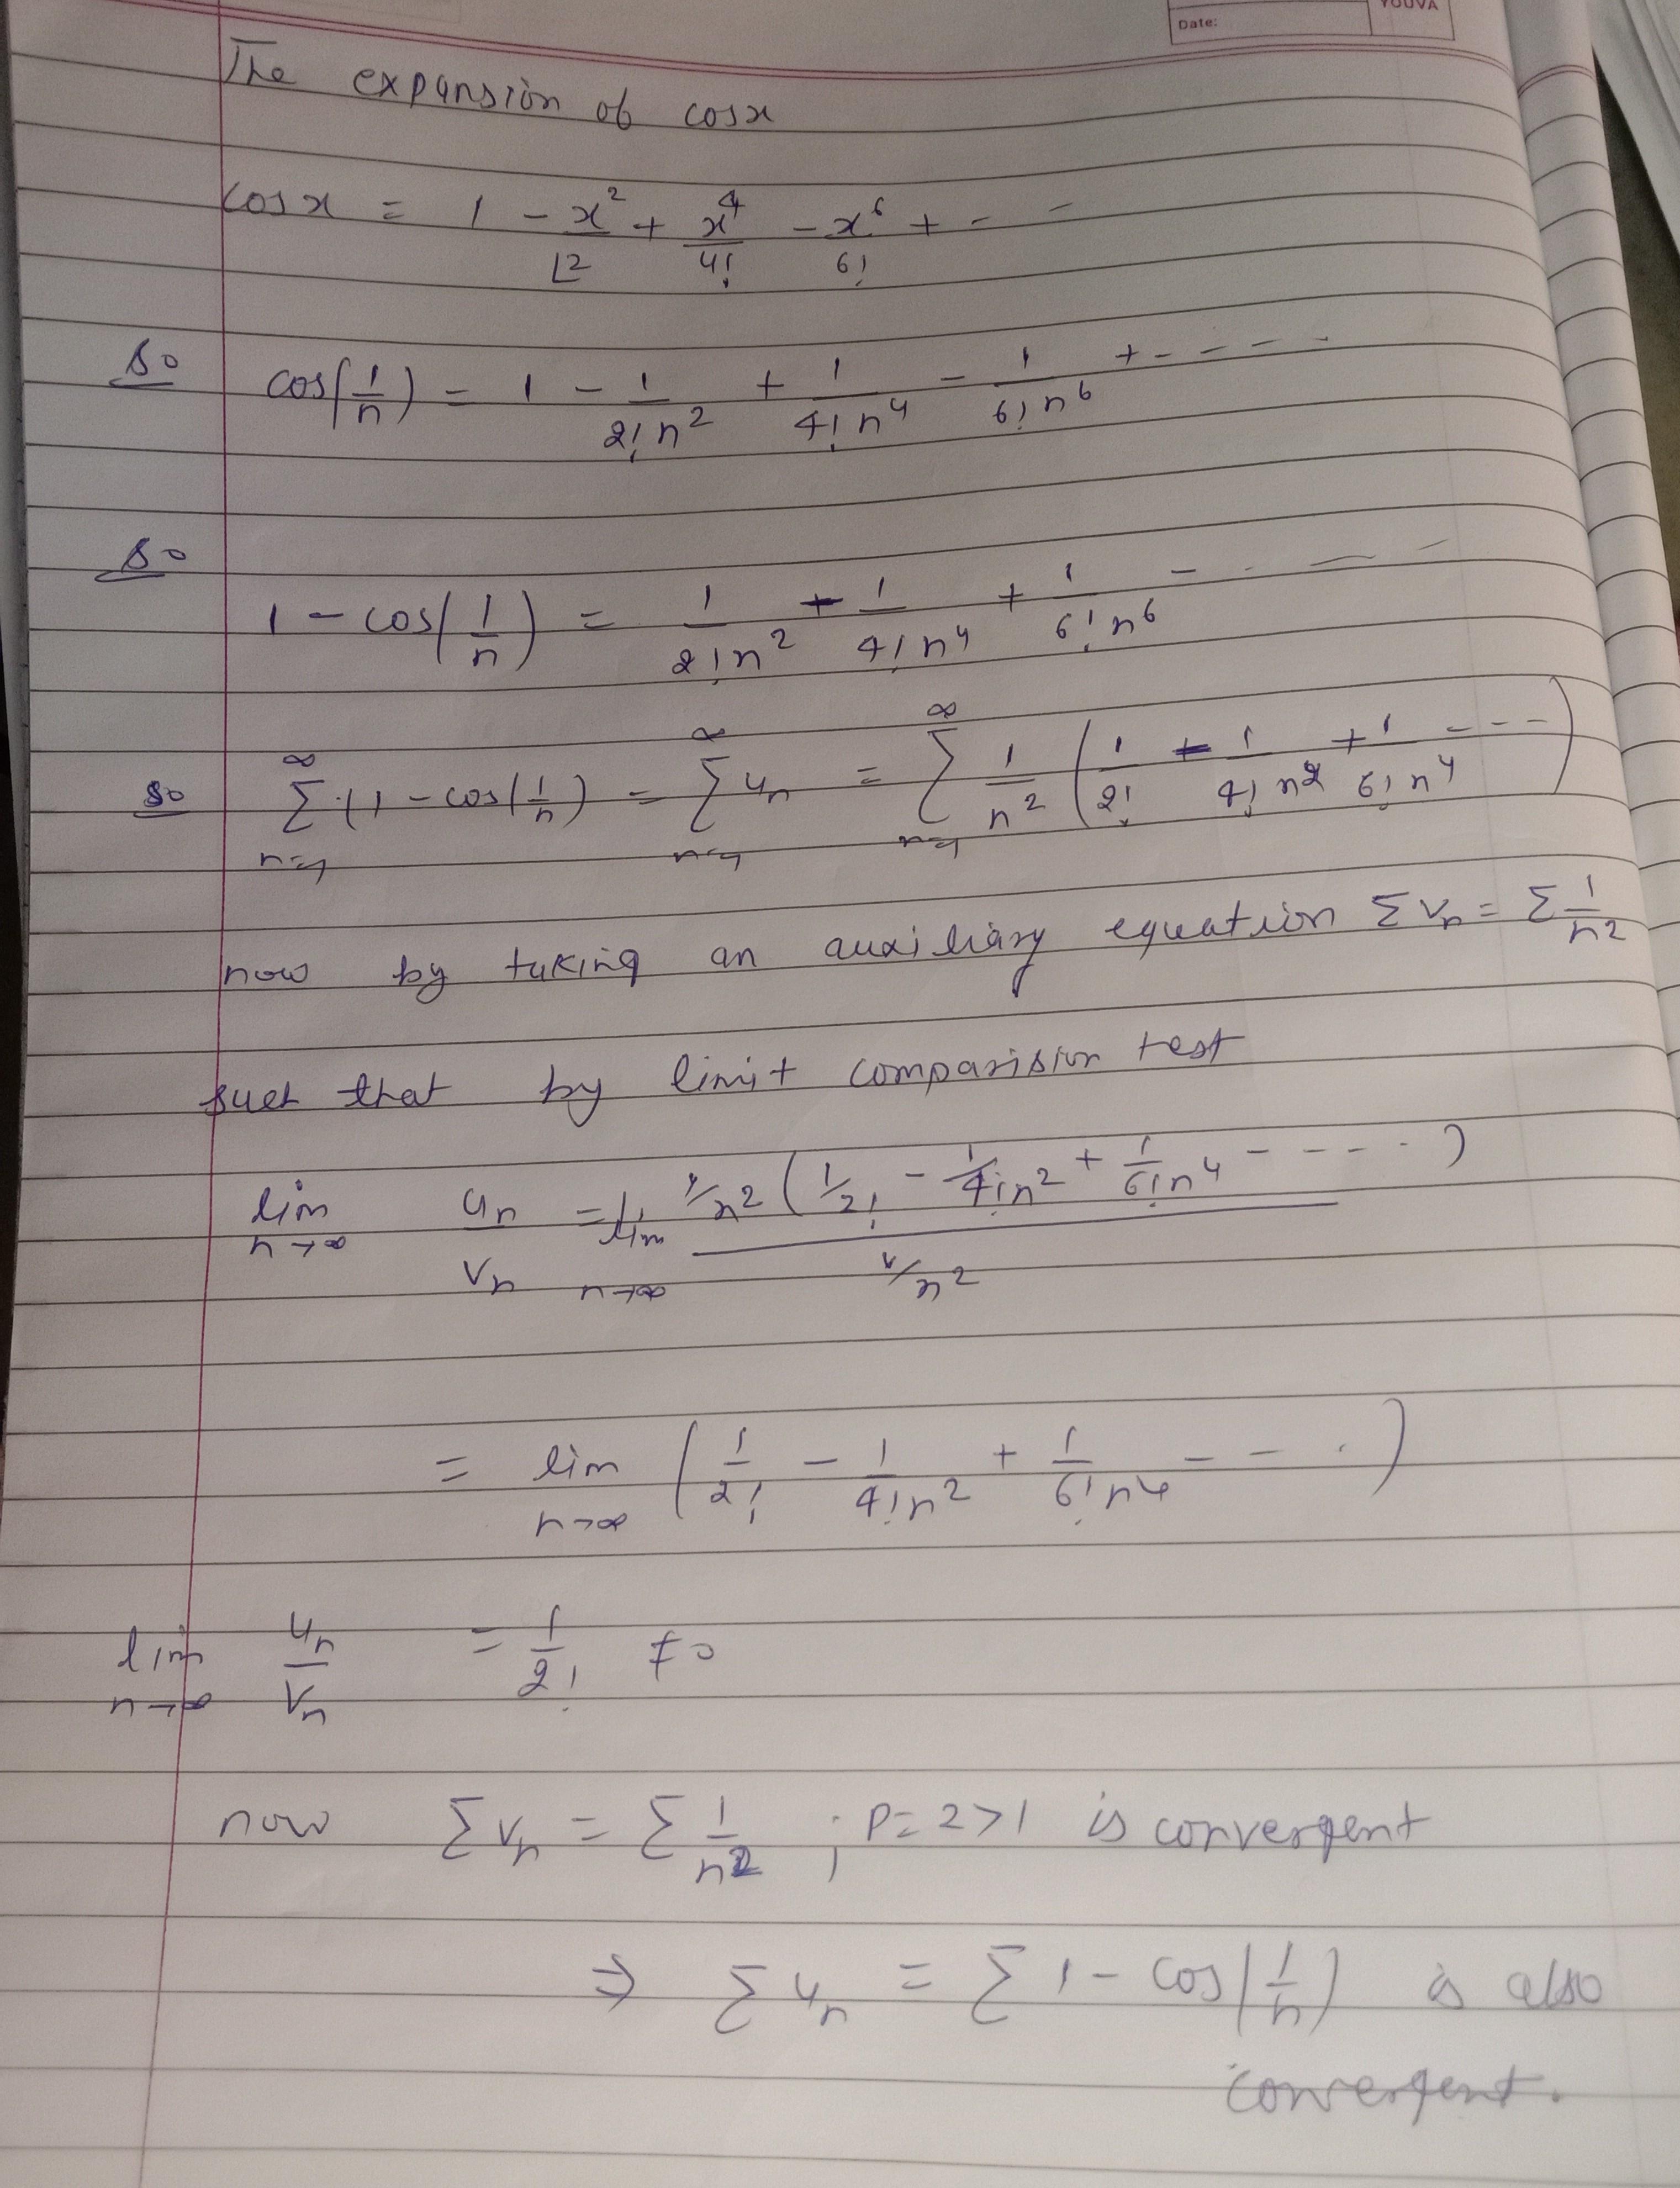 YOUVA
Date:
The expansion of cosx
cosx = 1 - x²/⌊2 + x⁴/4! - x⁶/6! + - -
so cos(1/n) = 1 - 1/2!n² + 1/4!n⁴ - 1/6!n⁶ + - - - -
so
1 - cos(1/n) = 1/2!n² - 1/4!n⁴ + 1/6!n⁶ - - - -
so ∞∑n=1 (1 - cos(1/n)) = ∞∑n=1 un = ∞∑n=1 1/n² (1/2! - 1/4!n² + 1/6!n⁴ - - -)
now by taking an auxiliary equation ∑vn = ∑1/n²
such that by limit comparision test
lim n→∞ un/vn = lim n→∞ 1/n² (1/2! - 1/4!n² + 1/6!n⁴ - - - -) / 1/n²
= lim n→∞ (1/2! - 1/4!n² + 1/6!n⁴ - - -)
lim n→∞ un/vn = 1/2! ≠ 0
now ∑vn = ∑1/n² ; P=2>1 is convergent
⇒ ∑un = ∑1 - cos(1/n) is also
convergent.